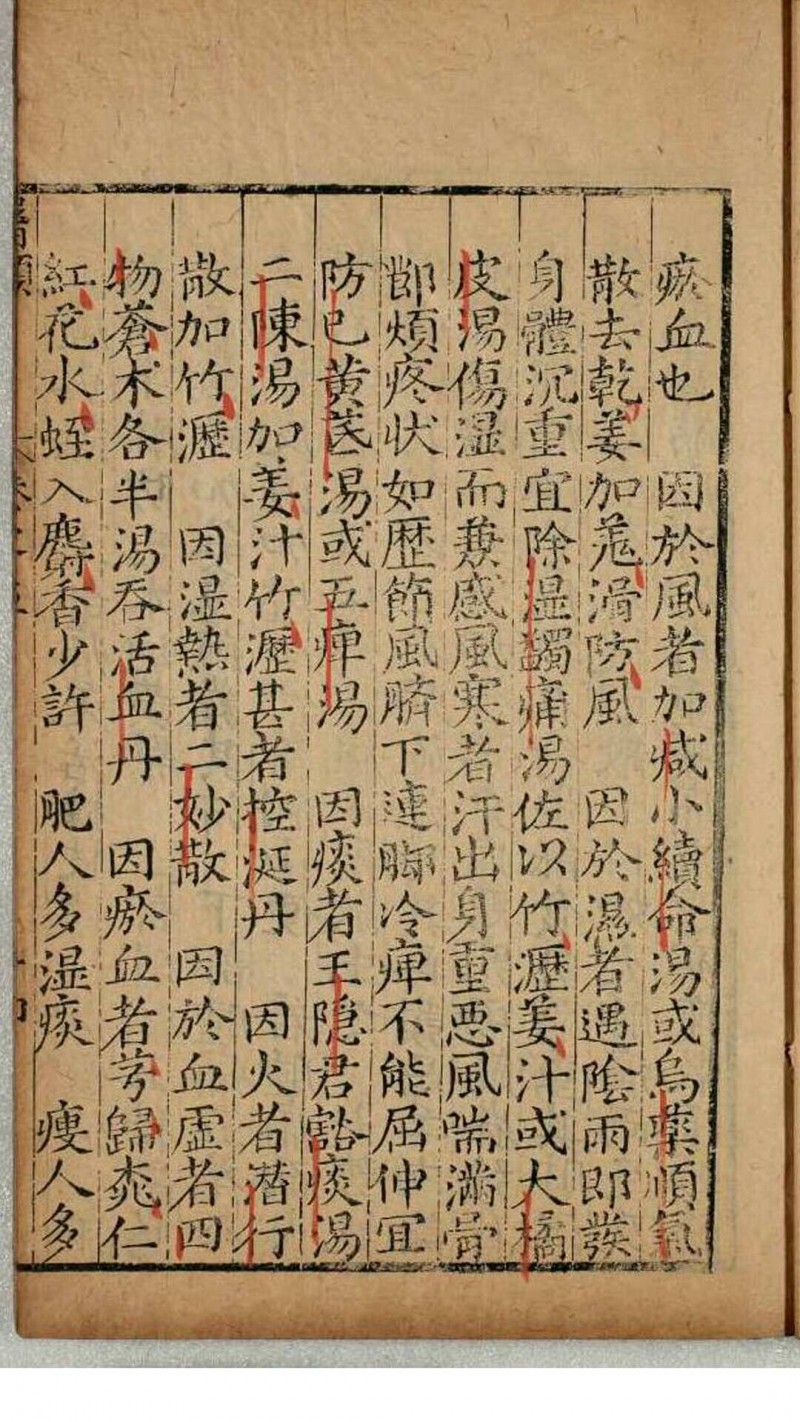 瘀血也　因於風者加减小續命湯或烏藥順氣
散去乾姜加羗滑防風　因於濕者遇陰雨即發
身體沉重宜除湿蠲痛湯佐以竹瀝姜汁或大橘
皮湯傷湿而兼感風寒者汗出身重惡風喘滿骨
節煩疼状如歷節風臍下連脚冷痺不能屈伸宜
防已黄芪湯或五痺湯　因痰者王隐君豁痰湯
二陳湯加姜汁竹瀝甚者控涎丹　因火者潜行
散加竹瀝　因湿熱者二妙散　因於血虛者四
物蒼术各半湯吞活血丹　因瘀血者芎歸桃仁
紅花水蛭入麝香少許　肥人多湿痰　瘦人多